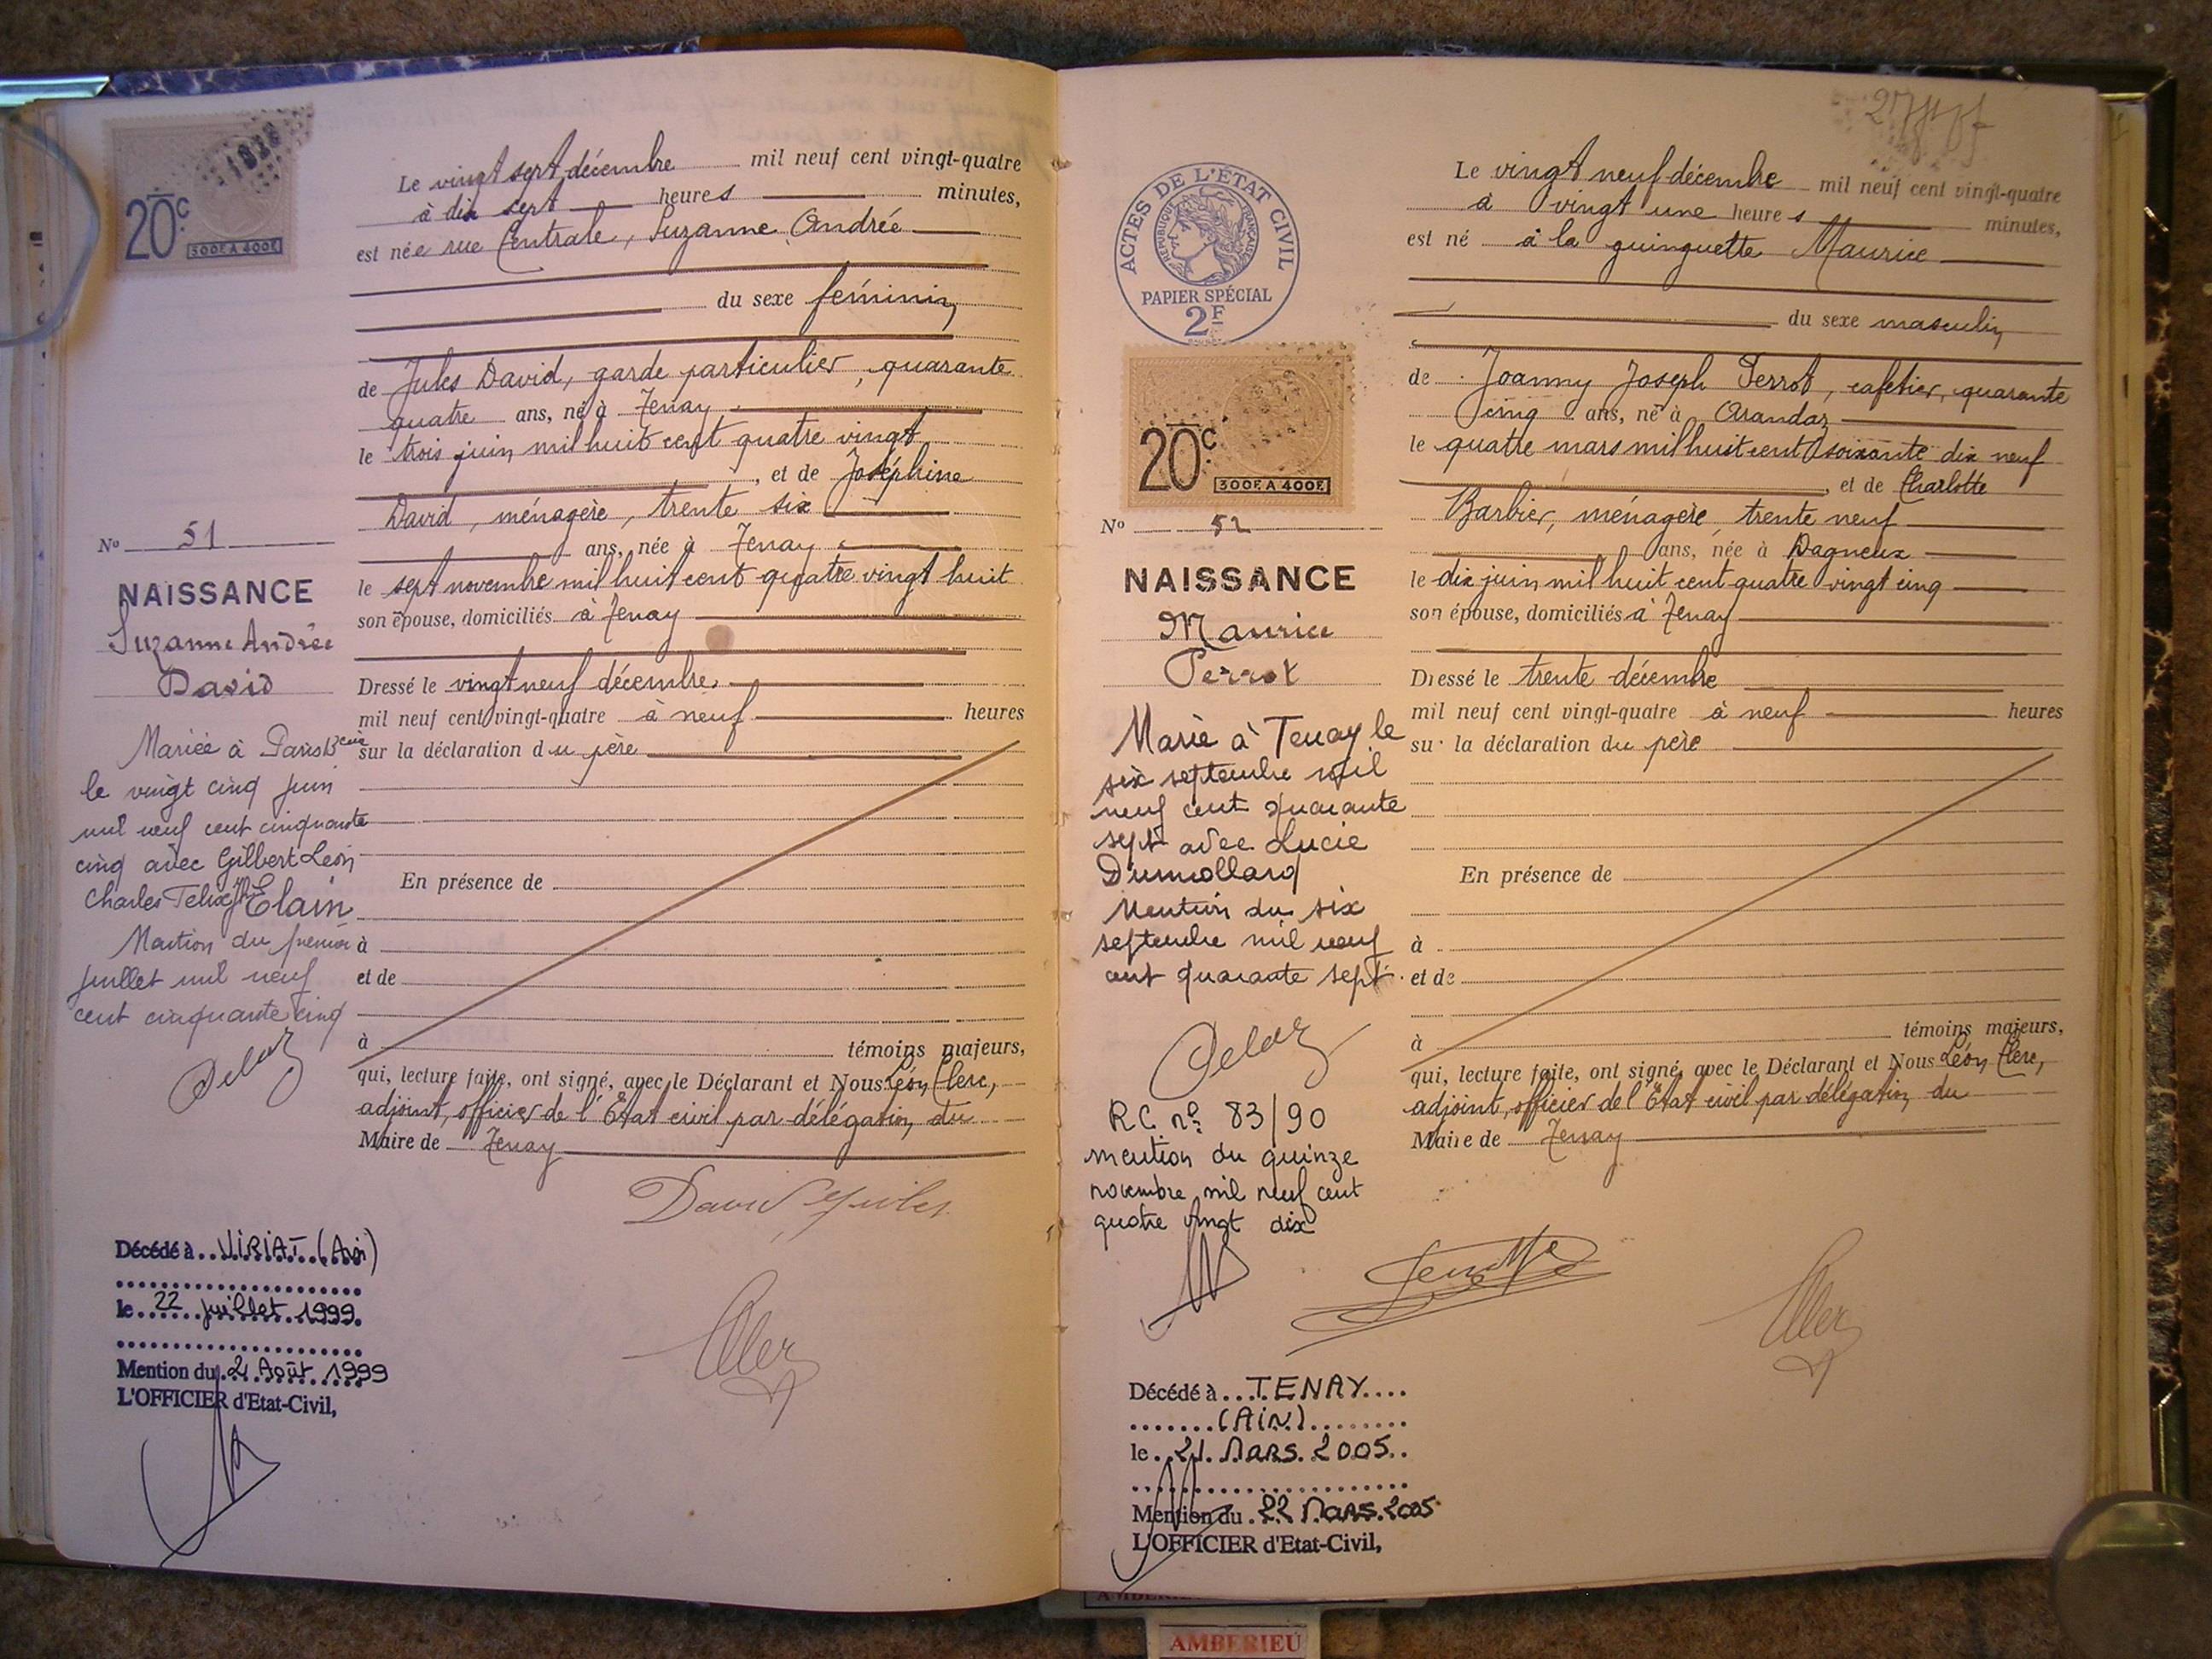 20c
300F A 400F
Le vingt sept décembre mil neuf cent vingt-quatre
à dix sept heures minutes,
est née rue Centrale, Suzanne Andrée
du sexe féminin
de Jules David, garde particulier, quarante
quatre ans, né à Tenay
le trois juin mil huit cent quatre vingt
, et de Joséphine
David, ménagère, trente six
ans, née à Tenay
le sept novembre mil huit cent quatre vingt huit
son épouse, domiciliés à Tenay
Dressé le vingt neuf décembre
mil neuf cent vingt-quatre à neuf heures
sur la déclaration du père
En présence de
à
et de
à témoins majeurs,
qui, lecture faite, ont signé, avec le Déclarant et Nous Léon Clerc,
adjoint, officier de l'État civil par délégation du
Maire de Tenay
David Jules
No 51
NAISSANCE
Suzanne Andrée
David
Mariée à Paris 13
le vingt cinq juin
mil neuf cent cinquante
cinq avec Gilbert Léon
Charles Félix Elain
Mention du premier
juillet mil neuf
cent cinquante cinq
Décédé à VIRIAT (Ain)
le 22 juillet 1999
Mention du 2 Août 1999
L'OFFICIER d'Etat-Civil,
ACTES DE L'ÉTAT CIVIL
RÉPUBLIQUE FRANÇAISE
PAPIER SPÉCIAL
2F
20c
300F A 400F
Le vingt neuf décembre mil neuf cent vingt-quatre
à vingt une heures minutes,
est né à la guinguette Maurice
du sexe masculin
de Joanny Joseph Perrot, cafetier, quarante
cinq ans, né à Arandas
le quatre mars mil huit cent soixante dix neuf
, et de Charlotte
Barbier, ménagère, trente neuf
ans, née à Dagneux
le dix juin mil huit cent quatre vingt cinq
son épouse, domiciliés à Tenay
Dressé le trente décembre
mil neuf cent vingt-quatre à neuf heures
sur la déclaration du père
En présence de
à
et de
à témoins majeurs,
qui, lecture faite, ont signé, avec le Déclarant et Nous Léon Clerc,
adjoint, officier de l'État civil par délégation du
Maire de Tenay
No 52
NAISSANCE
Maurice
Perrot
Marié à Tenay le
six septembre mil
neuf cent quarante
sept avec Lucie
Dumollard
Mention du six
septembre mil neuf
cent quarante sept
RC nº 83/90
mention du quinze
novembre mil neuf cent
quatre vingt dix
Décédé à TENAY
(AIN)
le 21 MARS 2005
Mention du 22 MARS 2005
L'OFFICIER d'Etat-Civil,
AMBERIEU